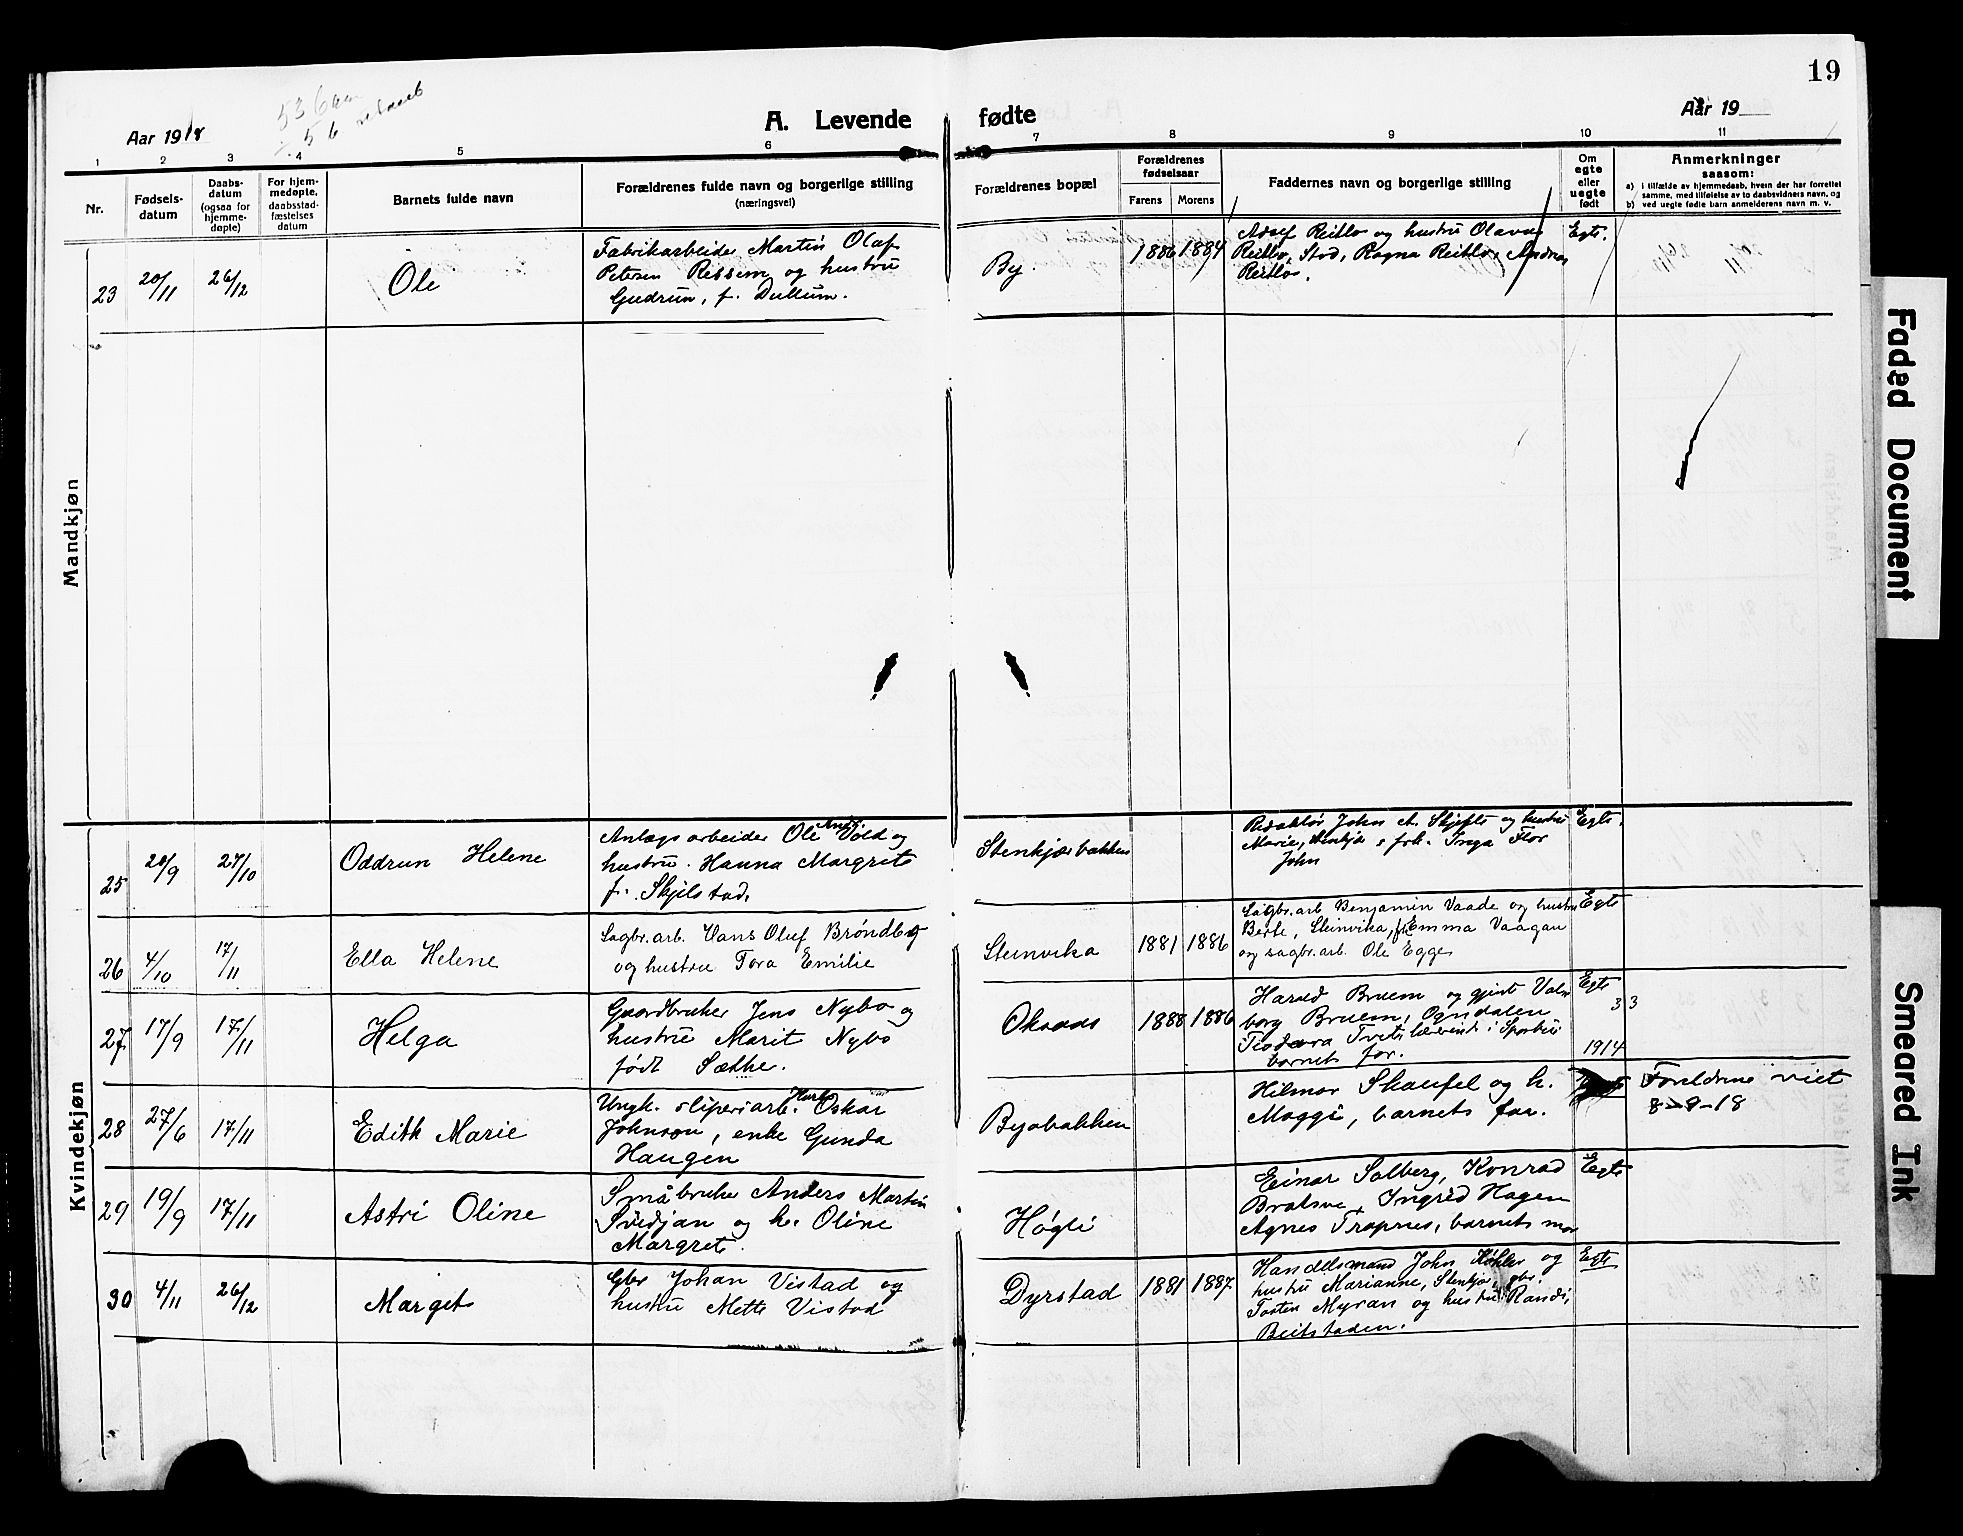 19
Aar 1918
A. Levende fødte
Aar 19
1 2 3 4 5 6 7 8 9 10 11
Nr.
Fødsels-
datum
Daabs-
datum
(ogsaa for
hjemme-
døpte)
For hjem-
medøpte,
daabsstad-
fæstelses
datum
Barnets fulde navn
Forældrenes fulde navn og borgerlige stilling
(næringsvei)
Forældrenes bopæl
Forældrenes
fødselsaar
Farens Morens
Faddernes navn og borgerlige stilling
Om
egte
eller
uegte
født
Anmerkninger
saasom:
a) i tilfælde av hjemmedaab, hvem der har forrettet
samme, med tilføielse av to daabsvidners navn, og
b) ved uegte fødte barn anmelderens navn m. v.
Mandkjøn
23 20/11 26/12 Ole
Fabrikarbeide Martin Olaf
Petersen Rissem og hustru
Gudrun, f. Dullum.
By. 1886 1884
Adolf Reitlo og hustru Olava
Reitlo, Stod, Ragna Reitlo, Andreas
Reitlo.
Egte.
Kvindekjøn
25 20/9 27/10 Oddrun Helene
Anlægsarbeider Ole Andr. Vold og
hustru Hanna Margrete
f. Skjelstad.
Stenkjærbakken
Redaktør John A. Skjefte og hustru
Marie, Stenkjær, frk. Inga Flor
John
Egte.
26 4/10 17/11 Ella Helene
Sagbr.arb. Hans Oluf Brøndbo
og hustru Tora Emilie
Steinvika 1881 1886
Sagbr.arb Benjamin Vaade og hustru
Berte, Steinvika, frk Emma Vaagan
og sagbr.arb. Ole Egge
Egte
27. 17/9 17/11 Helga
Gaardbruker Jens Nybo og
hustru Marit Nybo
født Sæthe.
Oksaas 1888 1886
Harald Bruem og gjent Val
borg Bruem, Ogndalen
Teodora Tvete lærerinde i Sparbu
barnets far.
Egte
3 3
1914
28 27/6 17/11 Edith Marie
Ungk. sliperiarb. Oskar
Johnson, enke Gunda
Haugen
Byabakken
Hilmar Skaufel og h.
Maggi, barnets far.
Foreldrene viet
8-9-18
29 19/9 17/11 Astri Oline
Småbruker Anders Martin
Svedjan og h. Oline
Margrete.
Høgli
Einar Solberg, Konrad
Bratsve, Ingrid Hagen
Agnes Trapnes, barnets mor
Egte
30 4/11 26/12 Margete
Gbr Johan Vistad og
hustru Mette Vistad
Dyrstad 1881 1887.
Handelsmand John Køhler og
hustru Marianne, Stenkjær, gbr.
Torsten Myran og hustru Randi,
Beitstaden.
Egte
Faded Document
Smeared Ink